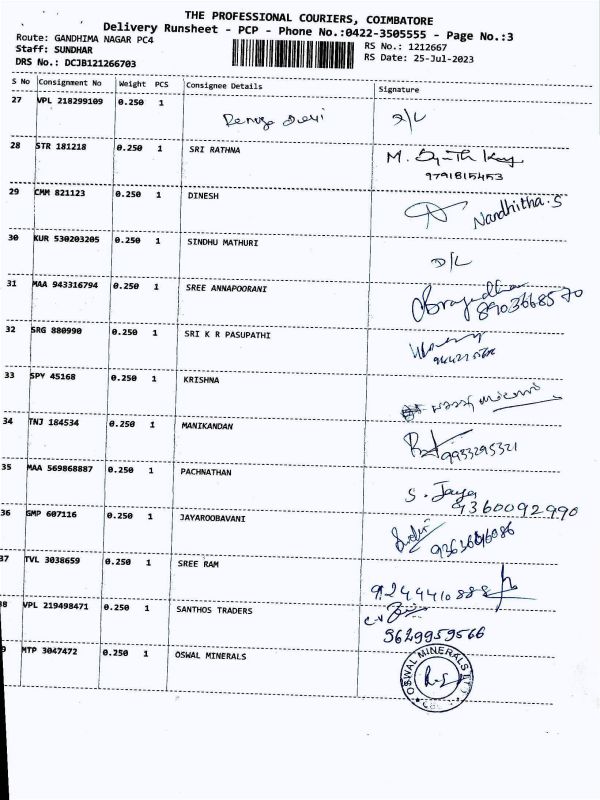 THE PROFESSIONAL COURIERS, COIMBATORE
Delivery Runsheet - PCP - Phone No.:0422-3505555 - Page No.:3
Route: GANDHIMA NAGAR PC4
RS No.: 1212667
Staff: SUNDHAR
RS Date: 25-Jul-2023
DRS No.: DCJB121266703
S No Consignment No Weight PCS Consignee Details Signature
27 VPL 218299109 0.250 1 Renuga Devi D/L
28 STR 181218 0.250 1 SRI RATHNA M.
9791815453
29 CMM 821123 0.250 1 DINESH Nandhitha.S
30 KUR 530203205 0.250 1 SINDHU MATHURI D/L
31 MAA 943316794 0.250 1 SREE ANNAPOORANI
8903668570
32 SRG 880990 0.250 1 SRI K R PASUPATHI
33 SPY 45168 0.250 1 KRISHNA
34 TNJ 184534 0.250 1 MANIKANDAN 9933295321
35 MAA 569868887 0.250 1 PACHNATHAN S. Jaya
9360092990
36 GMP 607116 0.250 1 JAYAROOBAVANI
37 TVL 3038659 0.250 1 SREE RAM
9244410888
38 VPL 219498471 0.250 1 SANTHOS TRADERS
9629959566
9 MTP 3047472 0.250 1 OSWAL MINERALS OSWAL MINERALS